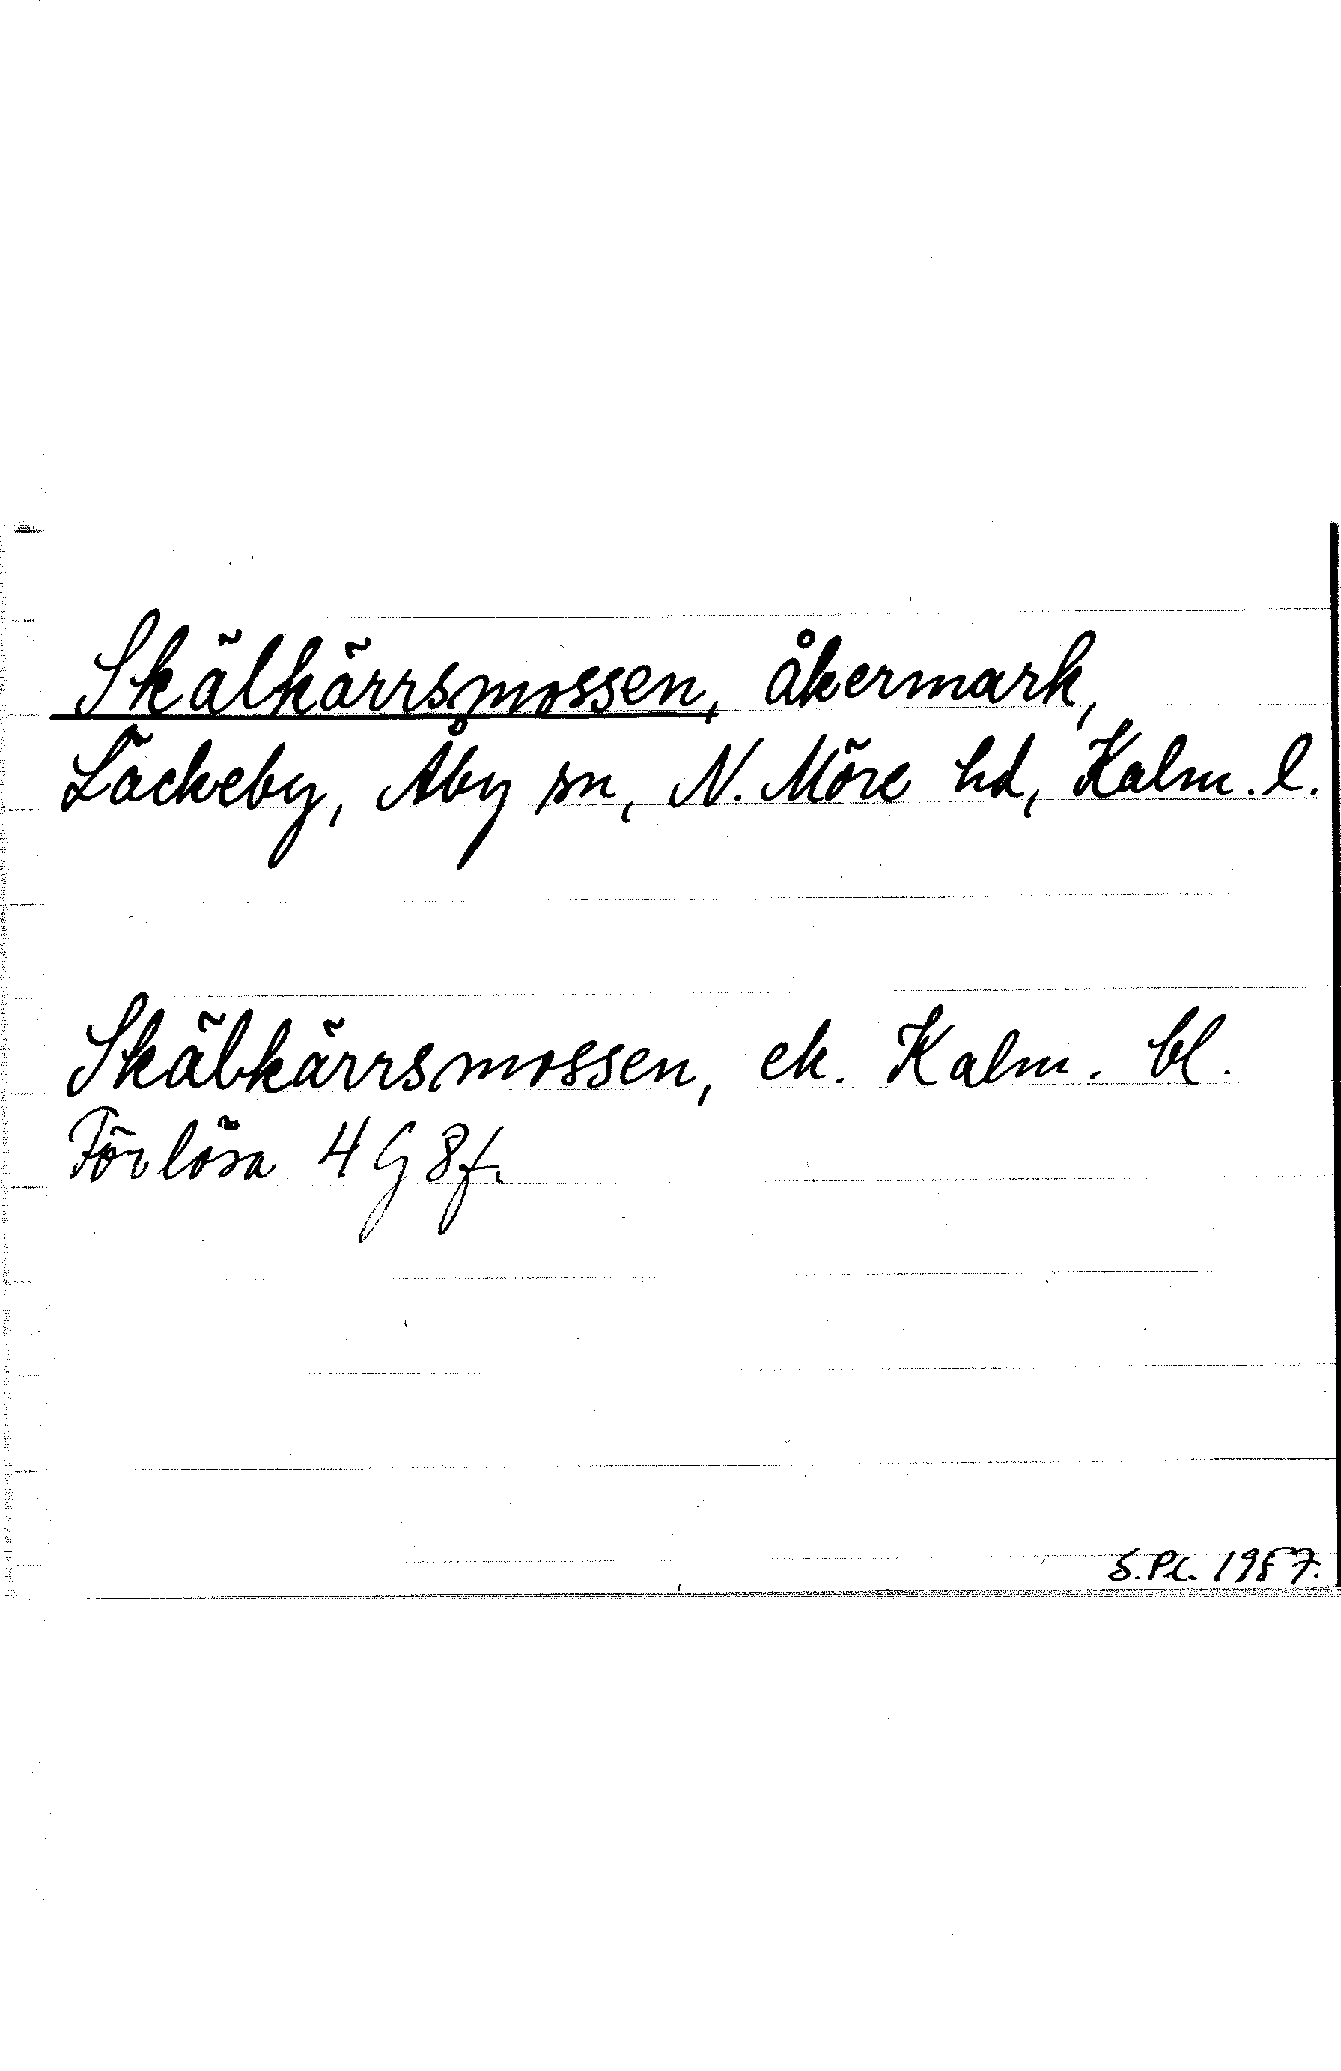 Skälkärrsmossen, åkermark,
Läckeby, Åby sn, N. Möre hd, Kalm. l.
Skälkärrsmossen, ek. Kalm. bl.
Förlösa 4G 8f.
S.Pl. 1987.